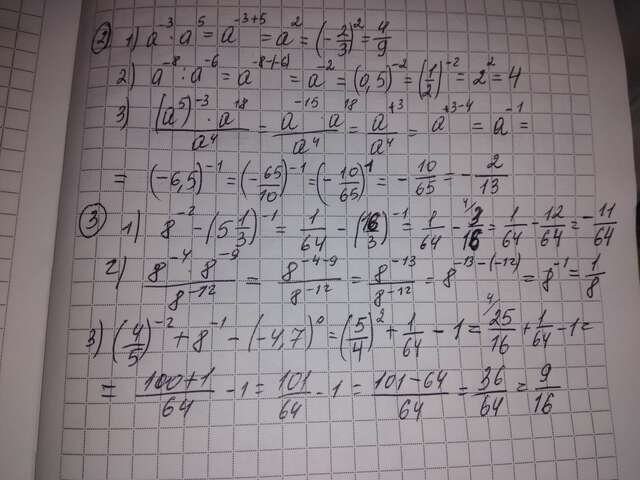 ② 1) a⁻³ · a⁵ = a⁻³⁺⁵ = a² = (-2/3)² = 4/9
2) a⁻⁸ : a⁻⁶ = a⁻⁸⁻⁽⁻⁶⁾ = a⁻² = (0,5)⁻² = (1/2)⁻² = 2² = 4
3) (a⁵)⁻³ · a¹⁸ / a⁴ = a⁻¹⁵ · a¹⁸ / a⁴ = a⁺³ / a⁴ = a⁺³⁻⁴ = a⁻¹ =
= (-6,5)⁻¹ = (-65/10)⁻¹ = (-10/65)¹ = -10/65 = -2/13
③ 1) 8⁻² - (5 1/3)⁻¹ = 1/64 - (16/3)⁻¹ = 1/64 - ⁴⁾3/16 = 1/64 - 12/64 = -11/64
2) 8⁻⁴ · 8⁻⁹ / 8⁻¹² = 8⁻⁴⁻⁹ / 8⁻¹² = 8⁻¹³ / 8⁻¹² = 8⁻¹³⁻⁽⁻¹²⁾ = 8⁻¹ = 1/8
3) (4/5)⁻² + 8⁻¹ - (-4,7)⁰ = (5/4)² + 1/64 - 1 = ⁴⁾25/16 + 1/64 - 1 =
= 100+1/64 - 1 = 101/64 - 1 = 101-64/64 = 36/64 = 9/16